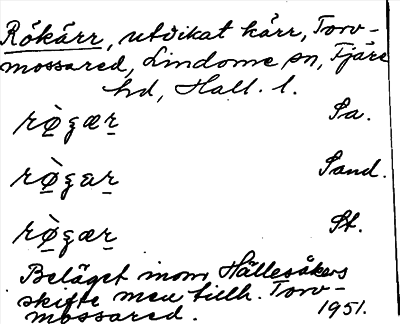 Rökärr, utvikat kärr, Torv-
mossared, Lindome sn, Fjäre
hd, Hall. l.
rø̀gær Sa.
rø̀gar Sand.
rø̀gær St.
Beläget inom Hällesåkers
skifte men tillh. Torv-
mossared. 1951.